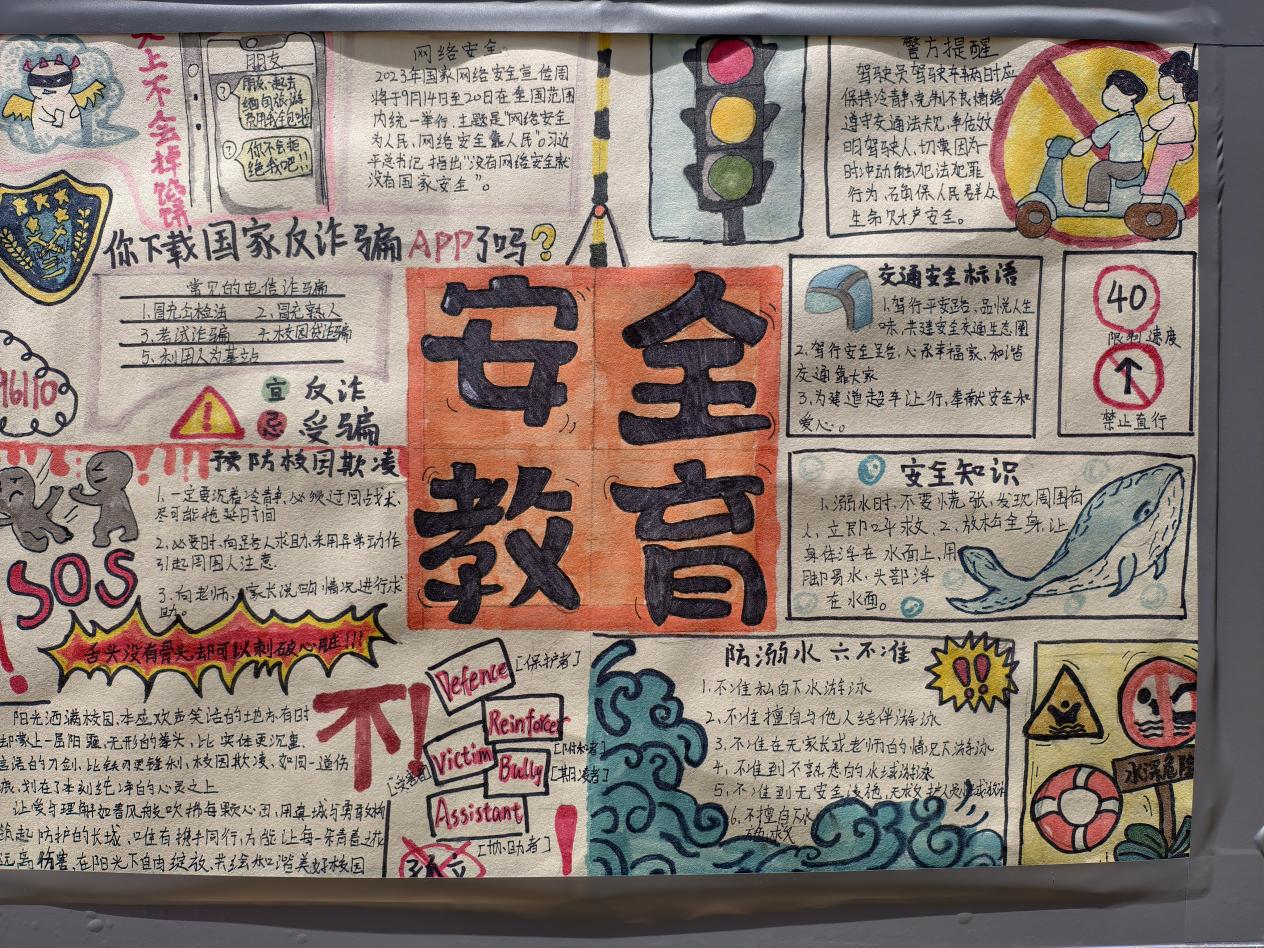 天上不会掉馅饼
朋友
朋友,一起去
缅甸旅游
费用我全包啦
你不会拒
绝我吧!!
网络安全
2023年国家网络安全宣传周
将于9月14日至20日在全国范围
内统一举行,主题是"网络安全
为人民,网络安全靠人民"。习近
平总书记指出:"没有网络安全就
没有国家安全"。
警方提醒
驾驶员驾驶车辆时应
保持冷静,克制不良情绪
遵守交通法规,争做文
明驾驶人,切莫因为一
时冲动触犯法犯罪
行为,石角保人民群众
生命财产安全。
你下载国家反诈骗APP了吗?
常见的电信诈骗
1.冒充公检法 2.冒充熟人
3.考试诈骗 4.校园贷诈骗
5.利用人为基站
96110
宜 反诈
忌 受骗
安全
教育
交通安全标语
1.驾行平安路,品悦人生
味,共建安全交通生态圈
2.驾行安全路,人承幸福家,和谐
交通靠大家
3.为超车让行,奉献安全和
爱心。
40
限制速度
禁止直行
预防校园欺凌
1.一定要沉着冷静,必须迂回战术,
尽可能拖延时间
2.必要时,向路人求助,采用异常动作
引起周围人注意.
3.向老师、家长说明情况进行求
助。
SOS
舌头没有骨头却可以刺破心脏!!!
安全知识
1.溺水时,不要慌张,发现周围有
人,立即呼救,2.放松全身,让
身体浮在水面上,用
脚踢水,头部浮
在水面。
不!
Defence [保护者]
Reinforcer
Victim
Bully
Assistant
[协助者]
阳光洒满校园,本应欢声笑语的地方有时
却蒙上一层阴霾,无形的拳头,比实体更沉重.
言语的刀剑,比铁刃更锋利,校园欺凌,如同一道伤
痕,划在了本刻纯净的心灵之上
让爱与理解如春风般吹拂每颗心田,用真诚与勇敢构
筑起防护的长城,唯有携手同行,方能让每一朵青春之花
远离伤害,在阳光下自由绽放,共绘和谐美好校园
防溺水六不准
1.不准私自下水游泳
2.不准擅自与他人结伴游泳
3.不准在无家长或老师的情况下游泳
4.不准到不熟悉的水域游泳
5.不准到无安全设施、无救护人员
6.不擅自下水
施救
!!
水深危险